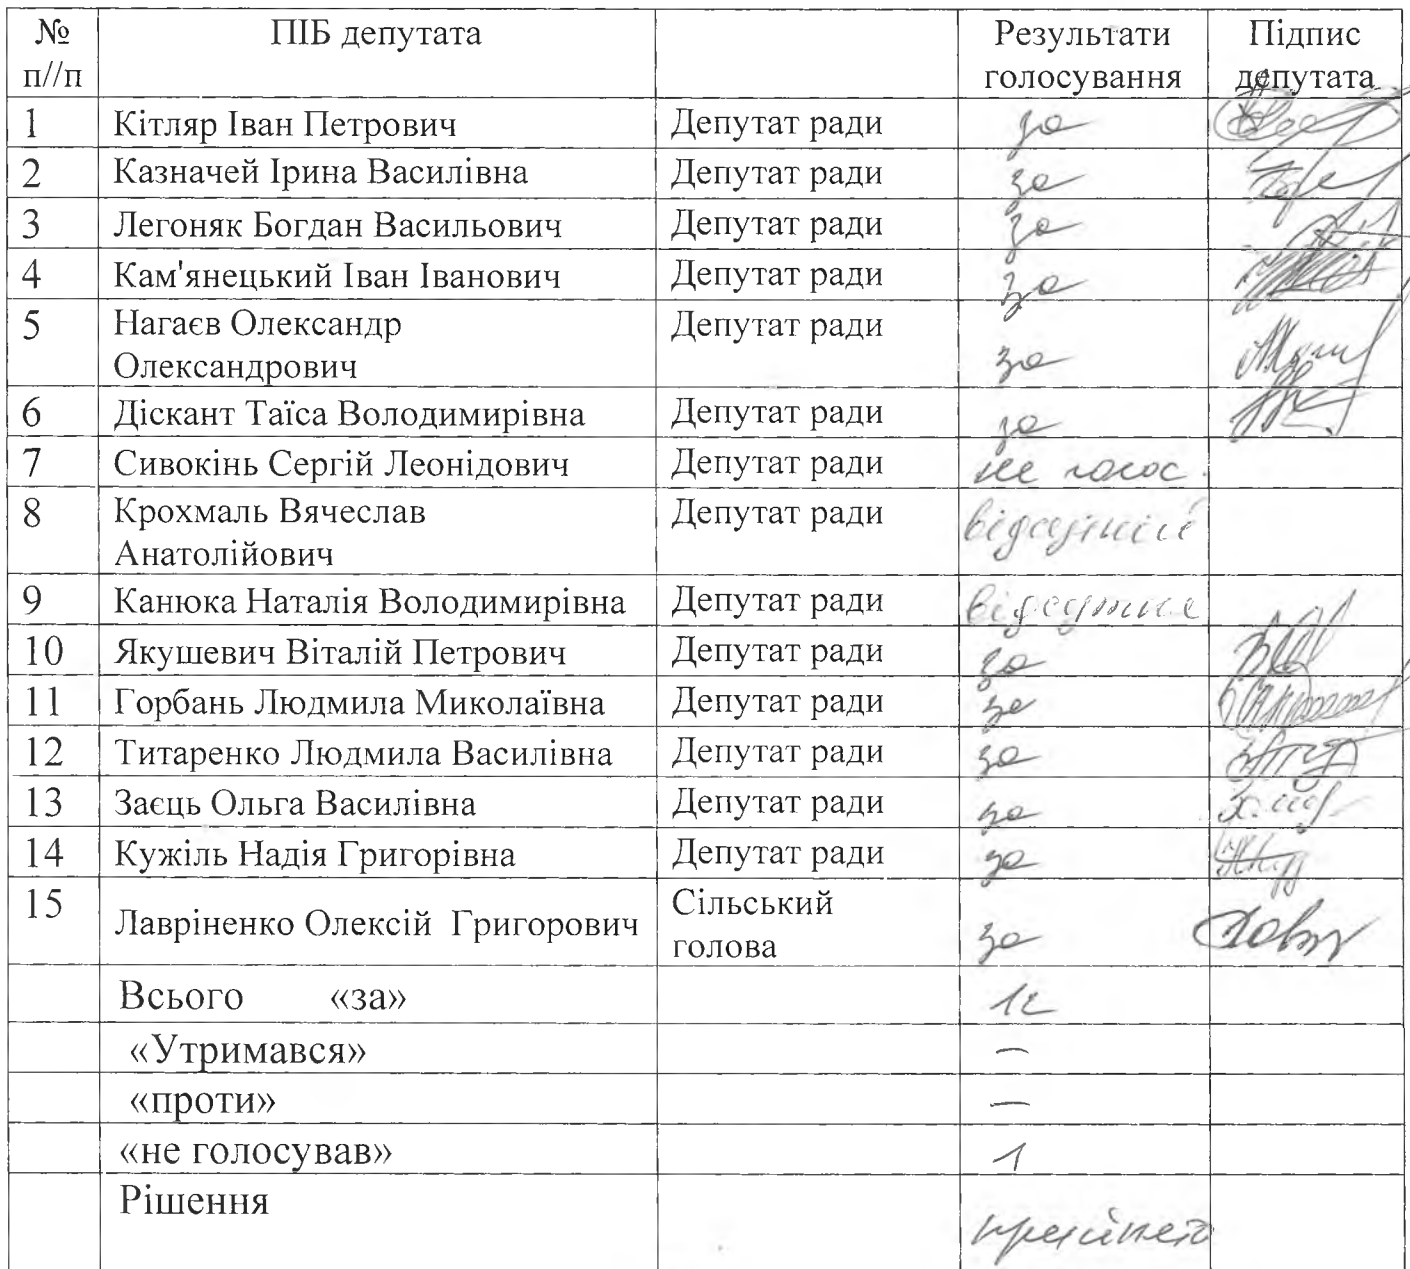 № п//п ПІБ депутата Результати голосування Підпис депутата
1 Кітляр Іван Петрович Депутат ради за
2 Казначей Ірина Василівна Депутат ради за
3 Легоняк Богдан Васильович Депутат ради за
4 Кам'янецький Іван Іванович Депутат ради за
5 Нагаєв Олександр Олександрович Депутат ради за
6 Діскант Таїса Володимирівна Депутат ради за
7 Сивокінь Сергій Леонідович Депутат ради не голос.
8 Крохмаль Вячеслав Анатолійович Депутат ради відсутній
9 Канюка Наталія Володимирівна Депутат ради відсутня
10 Якушевич Віталій Петрович Депутат ради за
11 Горбань Людмила Миколаївна Депутат ради за
12 Титаренко Людмила Василівна Депутат ради за
13 Заєць Ольга Василівна Депутат ради за
14 Кужіль Надія Григорівна Депутат ради за
15 Лавріненко Олексій Григорович Сільський голова за
Всього «за» 12
«Утримався» —
«проти» —
«не голосував» 1
Рішення прийнято